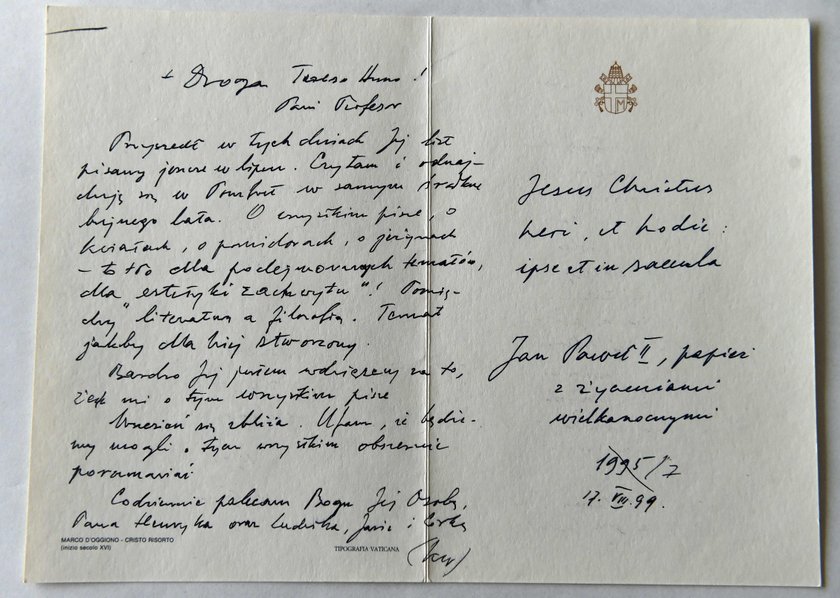 + Droga Tereso Anno!
Pani Profesor
Przyszedł w tych dniach Jej list
pisany jeszcze w lipcu. Czytam i odnaj-
duję się w Pomfret w samym środku
bujnego lata. O wszystkim pisze, o
kwiatach, o pomidorach, o jeżynach
– to tło dla podejmowanych tematów,
dla „estetyki zachwytu"! Pomię-
dzy literaturą a filozofią. Temat
jakby dla Niej stworzony.
Bardzo Jej jestem wdzięczny za to,
że mi o tym wszystkim pisze
Wrzesień się zbliża. Ufam, że będzie-
my mogli o tym wszystkim obszernie
porozmawiać
Codziennie polecam Bogu Jej Osobę,
Pana Henryka oraz Ludwika, Jasia i
MARCO D'OGGIONO - CRISTO RISORTO
(inizio secolo XVI)
TIPOGRAFIA VATICANA
Jesus Christus
heri, et hodie:
ipse et in saecula
Jan Paweł II, papież
z życzeniami
wielkanocnymi
1995/7
17.VIII.99.